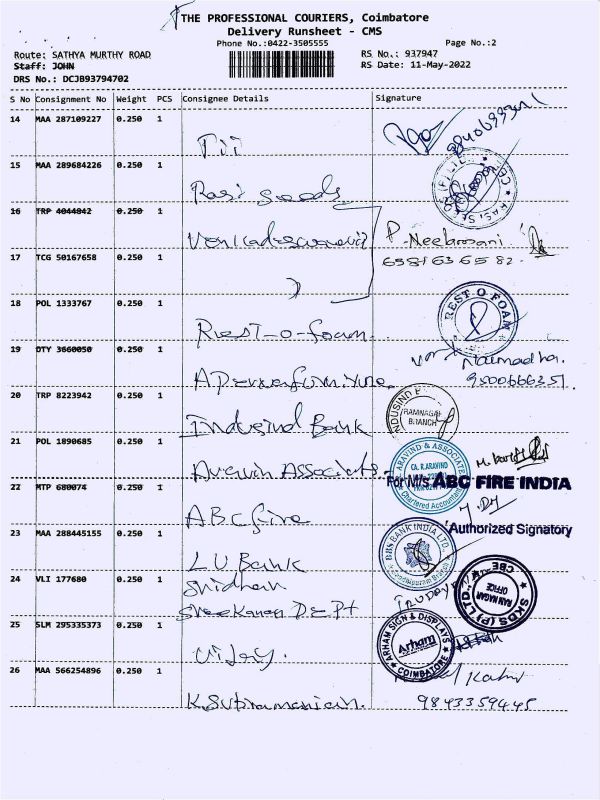 THE PROFESSIONAL COURIERS, Coimbatore
Delivery Runsheet - CMS
Phone No.:0422-3505555 Page No.:2
Route: SATHYA MURTHY ROAD RS No.: 937947
Staff: JOHN RS Date: 11-May-2022
DRS No.: DCJB93794702
S No Consignment No Weight PCS Consignee Details Signature
14 MAA 287109227 0.250 1
15 MAA 289684226 0.250 1
Rasi seeds
16 TRP 4044842 0.250 1
P. Neelarosani
17 TCG 50167658 0.250 1
18 POL 1333767 0.250 1
REST-O-FOAM
Rest-o-foam.
19 DTY 3660050 0.250 1
9500666351
20 TRP 8223942 0.250 1
INDUSIND
RAMNAGAR
BRANCH
Indusind Bank
21 POL 1890685 0.250 1
ARAVIND & ASSOCIATES
CA. R.ARAVIND
Chartered Accountants
Associates
For M/s ABC FIRE INDIA
22 MTP 680074 0.250 1
ABC fire
Authorized Signatory
23 MAA 288445155 0.250 1
DBS BANK INDIA LTD.
LV Bank
24 VLI 177680 0.250 1
Sridhar
SKDS (P) LTD. CBE
RAM NAGAR
OFFICE
Sreekanan DEPt
25 SLM 295335373 0.250 1
ARHAM SIGN & DISPLAYS
Arham
COIMBATORE
Vijay.
26 MAA 566254896 0.250 1
K. Subramaniain. 9843359445